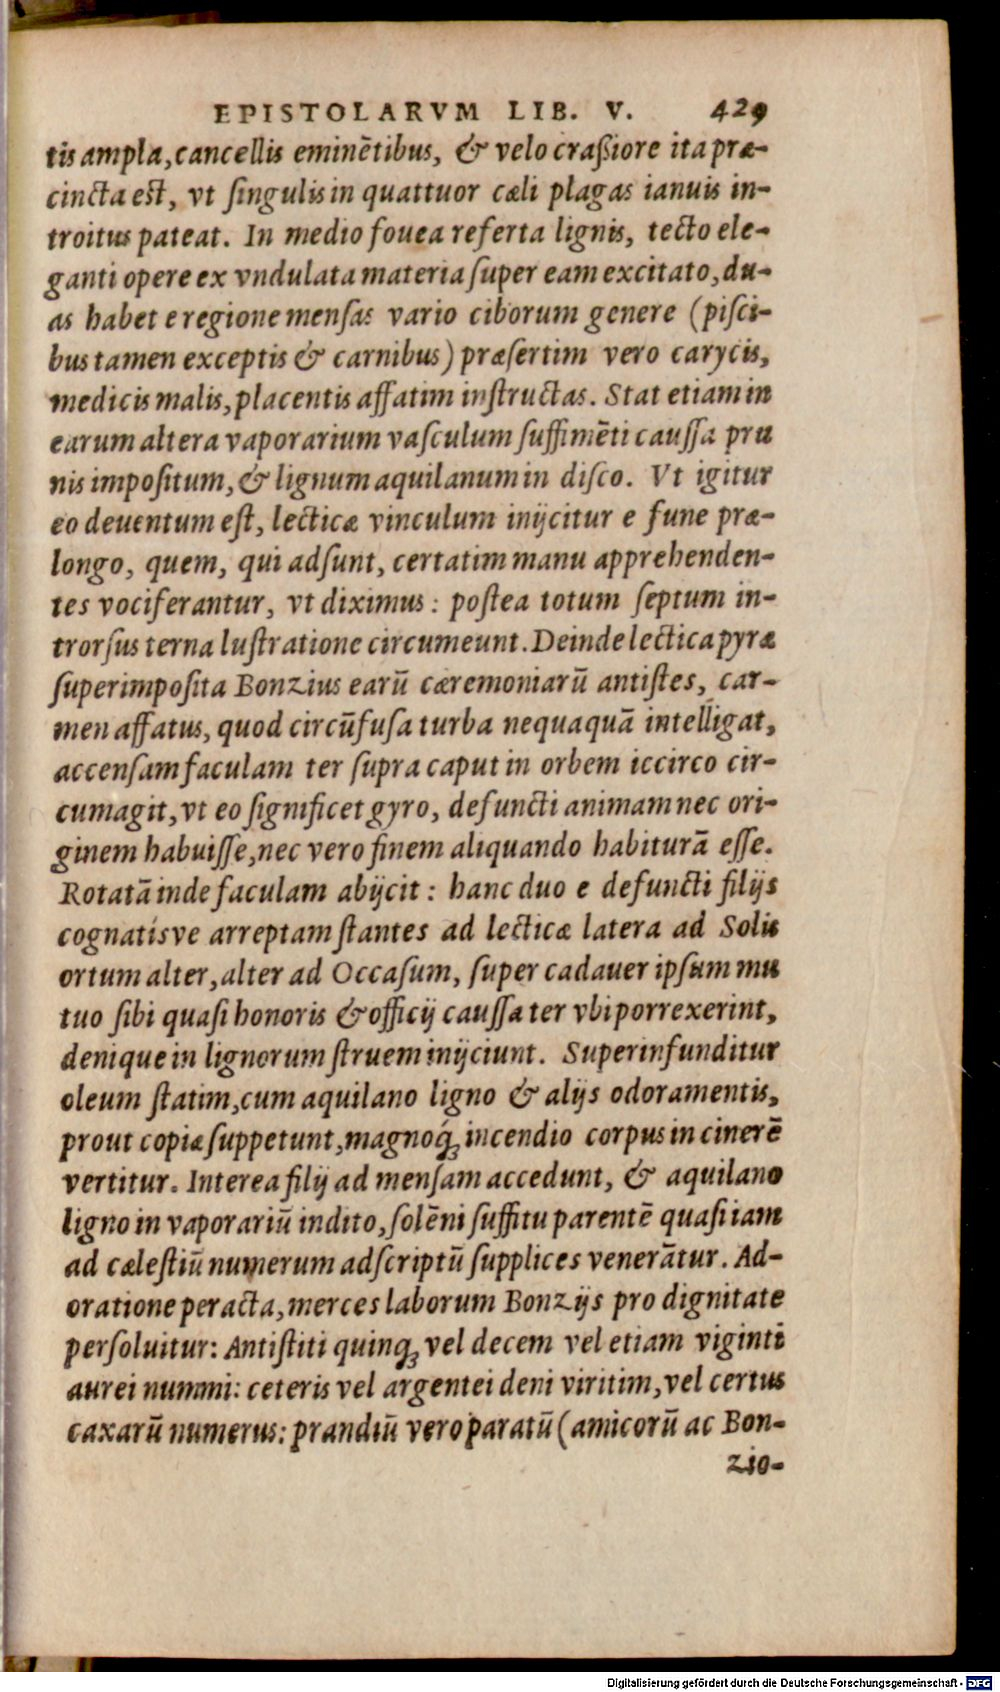 EPISTOLARVM LIB. V. 429
tis ampla, cancellis eminētibus, & velo craßiore ita præ-
cincta est, vt ſingulis in quattuor cæli plagas ianuis in-
troitus pateat. In medio fouea referta lignis, tecto ele-
ganti opere ex vndulata materia ſuper eam excitato, du-
as habet e regione menſas vario ciborum genere (piſci-
bus tamen exceptis & carnibus) præſertim vero carycis,
medicis malis, placentis affatim inſtructas. Stat etiam in
earum altera vaporarium vaſculum ſuffimēti cauſſa pru
nis impoſitum, & lignum aquilanum in diſco. Vt igitur
eo deuentum eſt, lecticæ vinculum inijcitur e fune præ-
longo, quem, qui adſunt, certatim manu apprehenden-
tes vociferantur, vt diximus: poſtea totum ſeptum in-
trorſus terna luſtratione circumeunt. Deinde lectica pyræ
ſuperimpoſita Bonzius earū cæremoniarū antiſtes, car-
men affatus, quod circūfuſa turba nequaquā intelligat,
accenſam faculam ter ſupra caput in orbem iccirco cir-
cumagit, vt eo ſignificet gyro, defuncti animam nec ori-
ginem habuiſſe, nec vero finem aliquando habiturā eſſe.
Rotatā inde faculam abijcit: hanc duo e defuncti filijs
cognatísve arreptam ſtantes ad lecticæ latera ad Solis
ortum alter, alter ad Occaſum, ſuper cadauer ipſum mu
tuo ſibi quaſi honoris & officij cauſſa ter vbi porrexerint,
denique in lignorum ſtruem inijciunt. Superinfunditur
oleum ſtatim, cum aquilano ligno & alijs odoramentis,
prout copiæ ſuppetunt, magnoq́; incendio corpus in cinerē
vertitur. Interea filij ad menſam accedunt, & aquilano
ligno in vaporariū indito, ſolēni ſuffitu parentē quaſi iam
ad cæleſtiū numerum adſcriptū ſupplices venerātur. Ad-
oratione peracta, merces laborum Bonzijs pro dignitate
perſoluitur: Antiſtiti quinq; vel decem vel etiam viginti
aurei nummi: ceteris vel argentei deni viritim, vel certus
caxarū numerus: prandiū vero paratū (amicorū ac Bon-
zio-
Digitalisierung gefördert durch die Deutsche Forschungsgemeinschaft - DFG